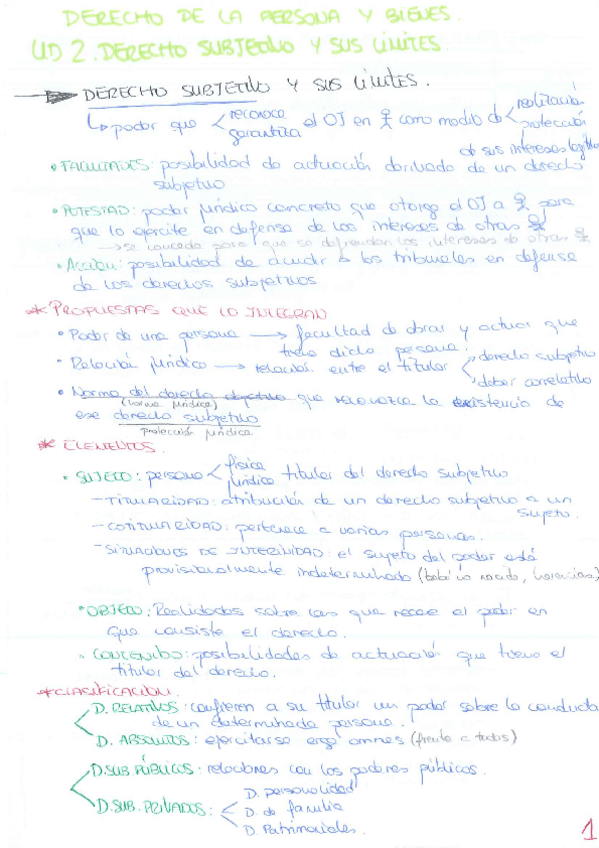 DERECHO DE LA PERSONA Y BIENES.
UD 2. DERECHO SUBJETIVO Y SUS LÍMITES.
DERECHO SUBJETIVO Y SUS LÍMITES.
poder que reconoce garantiza el OJ en como medio de realización protección
de sus intereses legítimos
• FACULTADES: posibilidad de actuación derivado de un derecho
subjetivo
• POTESTAD: poder jurídico concreto que otorga el OJ a para
que lo ejercite en defensa de los intereses de otras
→ se concede para que se defiendan los intereses de otras
• ACCIÓN: posibilidad de acudir a los tribunales en defensa
de los derechos subjetivos
* PROPUESTAS QUE LO INTEGRAN
• Poder de una persona → facultad de obrar y actuar que
tiene dicha persona.
• Relación jurídica → relación entre el titular derecho subjetivo
deber correlativo
• Norma del derecho objetivo que reconozca la existencia de
(norma jurídica)
ese derecho subjetivo
Protección jurídica
* ELEMENTOS.
• SUJETO: persona física jurídica titular del derecho subjetivo
- TITULARIDAD: atribución de un derecho subjetivo a un
sujeto.
- COTITULARIDAD: pertenece a varias personas.
- SITUACIONES DE INTERINIDAD: el sujeto del poder está
provisionalmente indeterminado (bebé no nacido, herencias)
• OBJETO: Realidades sobre las que recae el poder en
que consiste el derecho.
• CONTENIDO: posibilidades de actuación que tiene el
titular del derecho.
* CLASIFICACIÓN.
D. RELATIVOS: confieren a su titular un poder sobre la conducta
de un determinada persona.
D. ABSOLUTOS: ejercitarse erga omnes (frente a todos)
D. SUB. PÚBLICOS: relaciones con los poderes públicos.
D. SUB. PRIVADOS: D. personalidad
D. de familia
D. Patrimoniales.
1